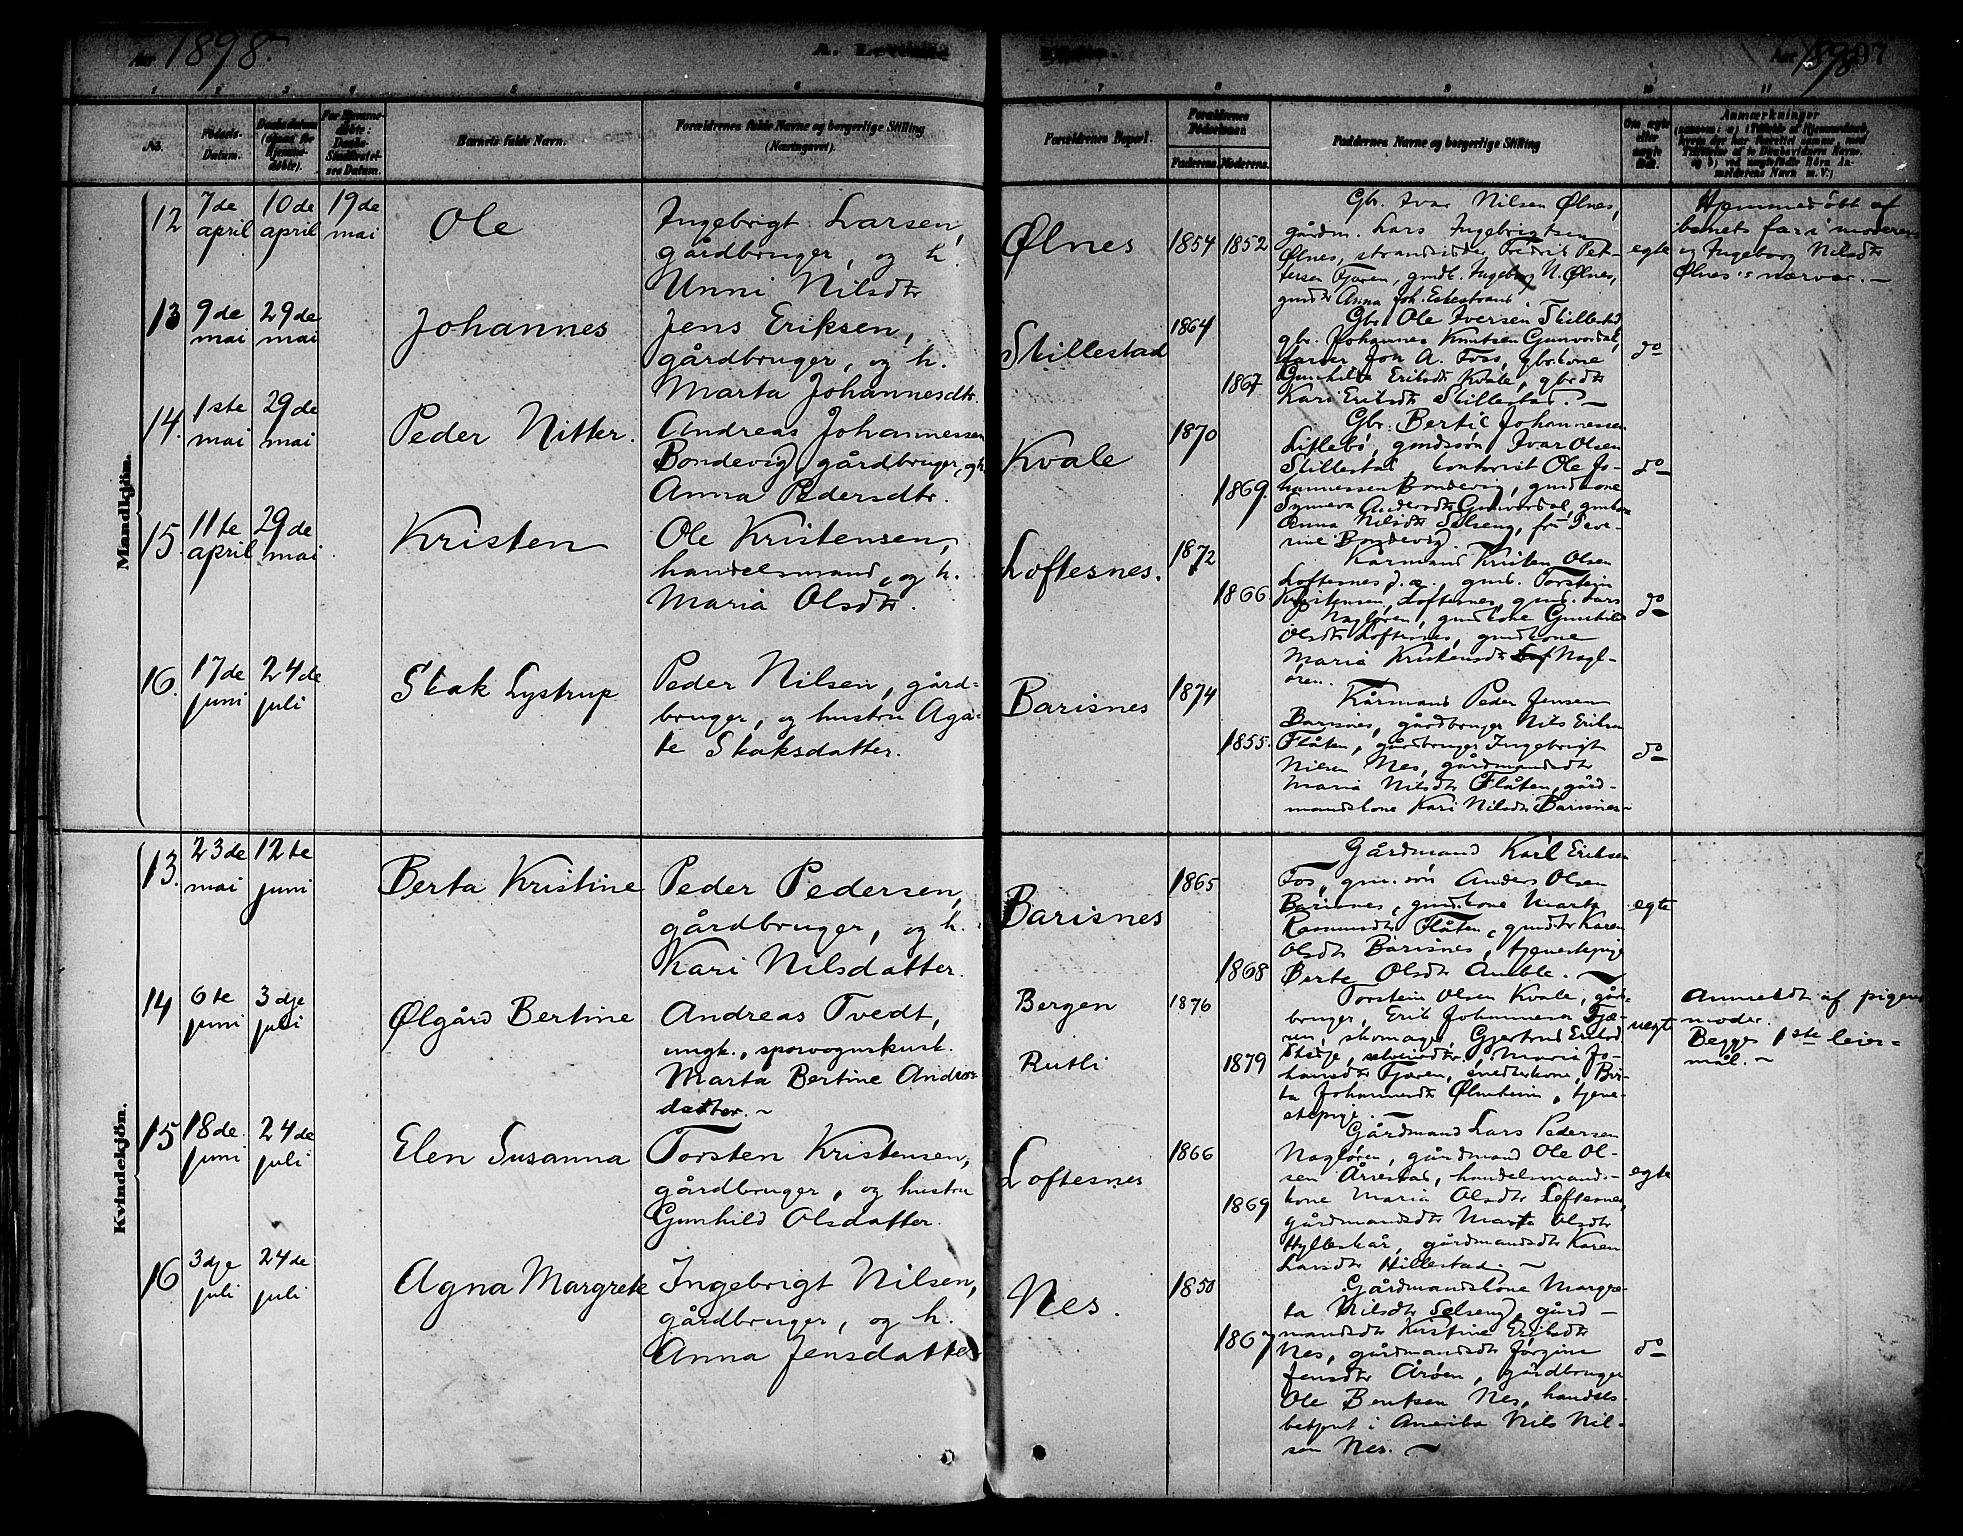 Aar 1898.
A. Levende
Aar 1898. 97
1 2 3 4 5 6 7 8 9 10 11
No.
Fødsels-
Datum.
Daabsdatum
(ogsaa for
Hjemme-
døbte).
For Hjemme-
døbte:
Daabs-
Stadfæstel-
ses Datum.
Barnets fulde Navn.
Forældrenes fulde Navne og borgerlige Stilling
(Næringsvei).
Forældrenes Bopæl.
Forældrenes
Fødselsaar.
Faderens. Moderens.
Faddernes Navne og borgerlige Stilling
Om ægte
eller
uægte
født.
Anmærkninger
Mandkjøn.
12 7de april 10de april 19de mai
Ole
Ingebrigt Larsen,
gårdbruger, og h.
Unni Nilsdtr
Ølnes
1854 1852
Gbr. Ivar Nilsen Ølnes,
gårdm. Lars Ingebrigtsen
Ølnes, strandsidder Fredrik Pet-
tersen Fjæren, gmdt. Ingeborg N. Ølnes,
gmdtr Anna Joh. Eskestrand.
egte
Hjemmedøbt af
barnets far i moderens
og Ingeborg Nilsdtr
Ølnes's nærvær. —
13 9de mai 29de mai
Johannes
Jens Eriksen,
gårdbruger, og h.
Marta Johannesdtr.
Skillestad
1864
1867
Gbr. Ole Iversen Skillestad
gbr. Johannes Knutsen Gunvordal,
Jon A. Foss, gbrkone
Gunhilda Eriksdtr Kvale, gbrdtr
Kari Eriksdtr Skillestad. —
do
14. 1ste mai 29de mai
Peder Nitter.
Andreas Johannessen
Bondevig, gårdbruger, og h
Anna Pedersdtr.
Kvale
1870
1869.
Gbr. Bertil Johannessen
Litlebø, gmdssøn Ivar Olsen
Skillestad, kontorist Ole Jo-
hannessen Bondevig, gmdkone
Synneva Andersdtr Gunvordal, gmkone
Anna Nilsdtr Selseng, frk Seve-
rine Bondevig
do
15. 11te april 29de mai
Kristen
Ole Kristensen,
handelsmand, og h.
Maria Olsdtr.
Loftesnes.
1872
1866.
Kårmand Kristen Olsen
Loftesnes d. æ., gmd. Torstein
Kristensen, Loftesnes, gmd. Lars
Nagløren, gmdkone Gunhild
Olsdtr Loftesnes, gmdkone
Maria Kristensdtr Nagl-
øren.
do
16. 17de juni 24de juli
Skak Lystrup
Peder Nilsen, gård-
bruger, og hustru Aga-
te Skaksdatter.
Barsnes
1874
1855.
Kårmand Peder Jensen
Barsnes, gårdbruger Nils Eriksen
Flåten, gårdbruger Ingebrigt
Nilsen Nes, gårdmandsdtr
Maria Nilsdtr Flåten, gård-
mandskone Kari Nilsdtr Barsnes—
do
Kvindekjøn.
13. 23de mai 12te juni
Berta Kristine
Peder Pedersen,
gårdbruger, og h.
Kari Nilsdatter.
Barsnes
1865
1868
Gårdmand Karl Eriksen
Fos, gmssøn Anders Olsen
Barsnes, gmdkone Marta
Rasmusdtr Flåten, gmdtr Karen
Olsdtr Barsnes, tjenestepige
Berta Olsdtr Amble. —
egte
14 6te juni 3dje juli
Ølgård Bertine
Andreas Tvedt,
ungk., sporvognskusk.
Marta Bertine Anders-
datter. ~
Bergen
Rutli
1876
1879
Torstein Olsen Kvale, gård-
bruger, Erik Johannesen Fjæ-
ren, skomager, Gjertrud Eriksd
Skeje, selveierdtr, Maria Jo-
hansdtr Fjæren, snedkerkone, Bri-
ta Johannesdtr Ølmheim, tjene-
stepige. —
uegte
Anmeldt af pigens
moder.
Begges 1ste leier-
mål. ~
15 18de juni 24de juli
Elen Susanna
Torsten Kristensen,
gårdbruger, og hustru
Gunhild Olsdatter.
Loftesnes
1866
1869
Gårdmand Lars Pedersen
Nagløren, gårdmand Ole Ol-
sen Årestad, handelsmands-
kone Maria Olsdtr Loftesnes,
gårdmandsdtr Marta Olsdtr
Hylleskår, gårdmandsdtr Karen
Larsdtr Hillestad. ~
egte
16 3dje juli 24de juli
Agna Margrete
Ingebrigt Nilsen,
gårdbruger, og h.
Anna Jensdatter
Nes.
1850
1867
Gårdmandskone Margre-
ta Nilsdtr Selseng, gård-
mandsdtr Kristine Eriksdtr
Nes, gårdmandsdtr Jørgine
Jensdtr Årøen, gårdbruger
Ole Bentsen Nes, handels-
betjent i Amerika Nils Nil-
sen Nes. ~
do